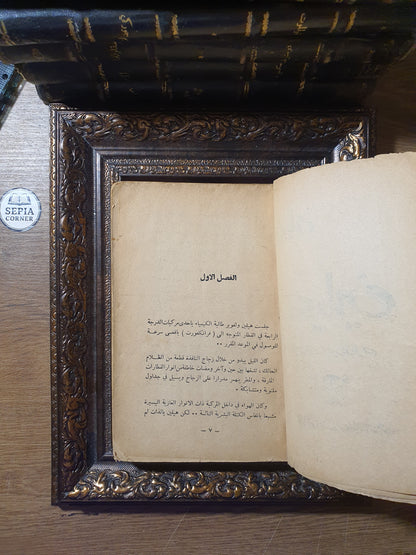 SEPIA
CORNER
الفصل الاول
جلست هيلين ولعوير طالبة الكيمياء باحدى مركبات الدرجة
الرابعة في القطار المتوجه الى ( فرانكفورت ) باقصى سرعة
للوصول في الموعد المقرر ..
كان الليل يبدو من خلال زجاج النافذة قطعة من الظلام
الحالك ، تشقها بين حين وآخر ومضات خاطفة من انوار القطارات
المارقة ، والمطر ينهمر مدرارا على الزجاج ويسيل في جداول
ملتوية ومتشابكة ..
وكان الهواء في داخل المركبة ذات الانوار الغازية اليسيرة
مشبعا بانفاس الكتلة البشرية النائمة .. لكن هيلين بالذات لم
– ٧ –